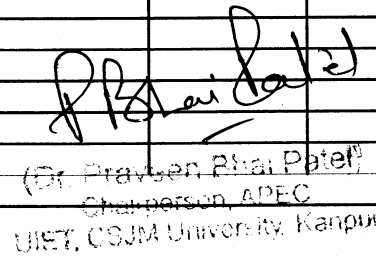 P Bhai Patel
(Dr. Praveen Bhai Patel)
Chairperson, APEC
UIET, CSJM University, Kanpur